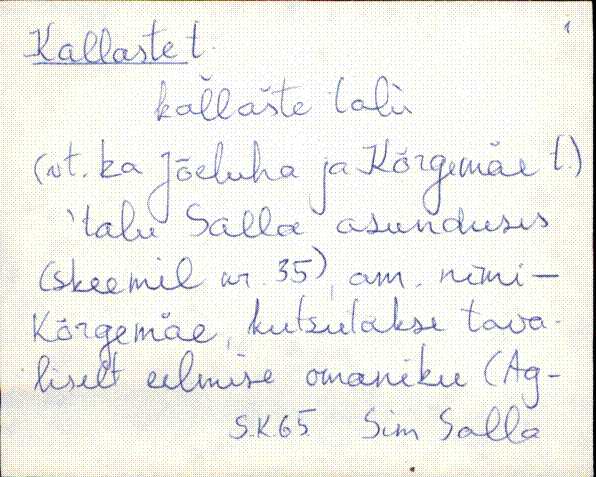 1
Kallaste t.
kallašte talù
(vt. ka Jõeluha ja Kõrgemäe t.)
'talu Salla asunduses
(skeemil nr. 35), am. nimi –
Kõrgemäe, kutsutakse tava-
liselt eelmise omaniku (Ag-
S.K.65. Sim Salla